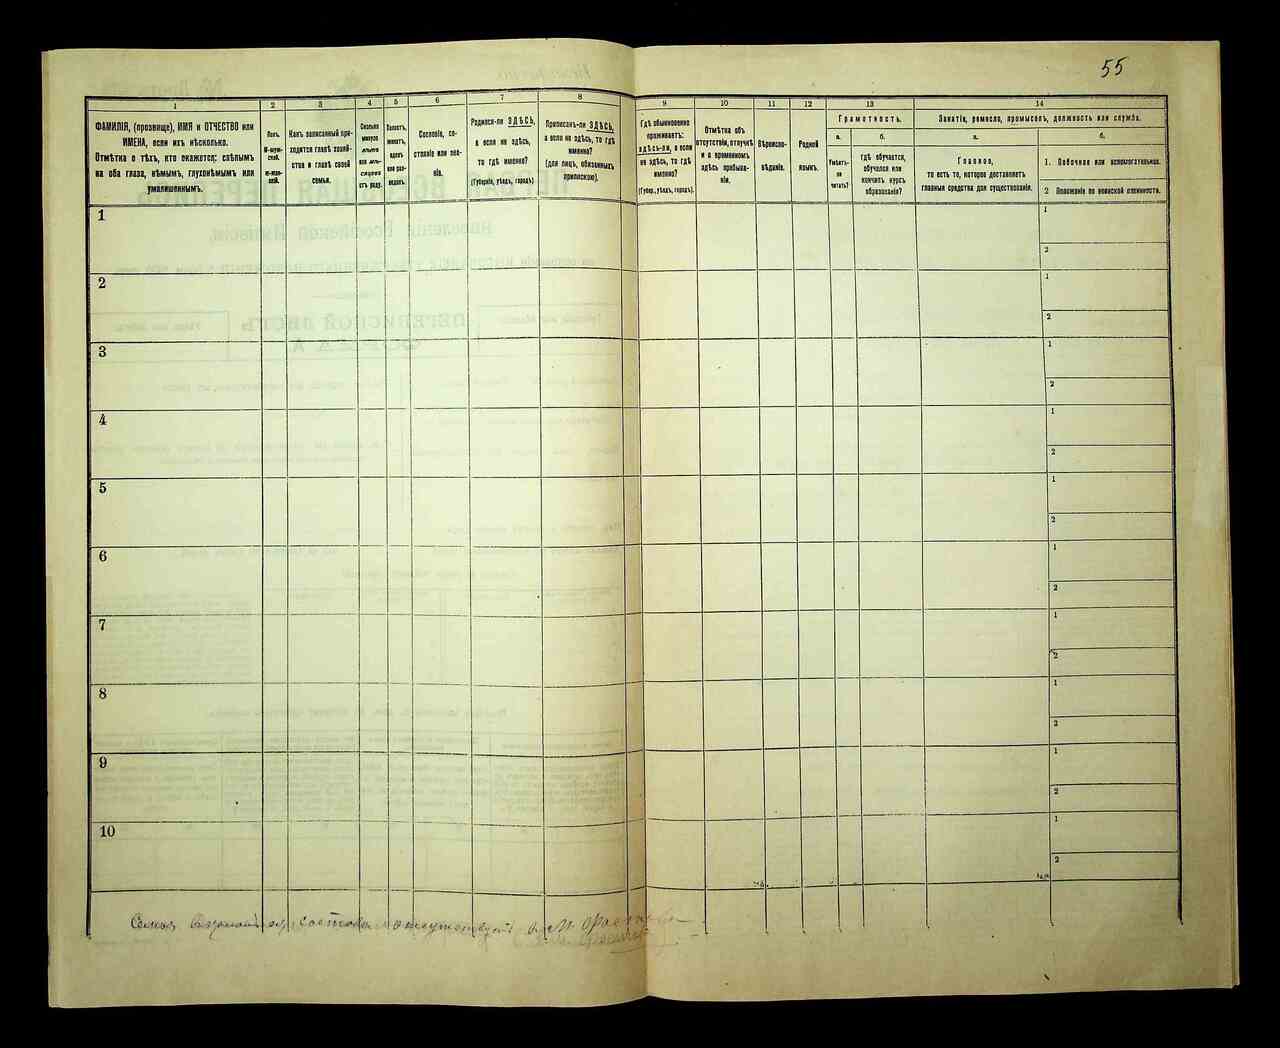 55
1 2 3 4 5 6 7 8 9 10 11 12 13 14
ФАМИЛІЯ, (прозвище), ИМЯ и ОТЧЕСТВО или
ИМЕНА, если ихъ нѣсколько.
Отмѣтка о тѣхъ, кто окажется: слѣпымъ
на оба глаза, нѣмымъ, глухонѣмымъ или
умалишеннымъ.
Полъ.
М-муж-
ской.
Ж-жен-
скій.
Какъ записанный при-
ходится главѣ хозяй-
ства и главѣ своей
семьи.
Сколько
минуло
лѣтъ
или мѣ-
сяцевъ
отъ роду.
Холостъ,
женатъ,
вдовъ
или раз-
веденъ.
Сословіе, со-
стояніе или зва-
ніе.
Родился-ли ЗДѢСЬ,
а если не здѣсь,
то гдѣ именно?
(Губернія, уѣздъ, городъ)
Приписанъ-ли ЗДѢСЬ,
а если не здѣсь, то гдѣ
именно?
(для лицъ, обязанныхъ
припискою).
Гдѣ обыкновенно
проживаетъ:
здѣсь-ли, а если
не здѣсь, то гдѣ
именно?
(Губер., уѣздъ, городъ).
Отмѣтка объ
отсутствіи, отлучкѣ
и о временномъ
здѣсь пребыва-
ніи.
Вѣроиспо-
вѣданіе.
Родной
языкъ.
Грамотность.
а.
Умѣетъ-
ли
читать?
б.
гдѣ обучается,
обучался или
кончилъ курсъ
образованія?
Занятіе, ремесло, промыселъ, должность или служба.
а.
Главное,
то есть то, которое доставляетъ
главныя средства для существованія.
б.
1. Побочное или вспомогательное.
2 Положеніе по воинской повинности.
1
1
2
2
1
2
3
1
2
4
1
2
5
1
2
6
1
2
7
1
2
8
1
2
9
1
2
10
1
2
Семья